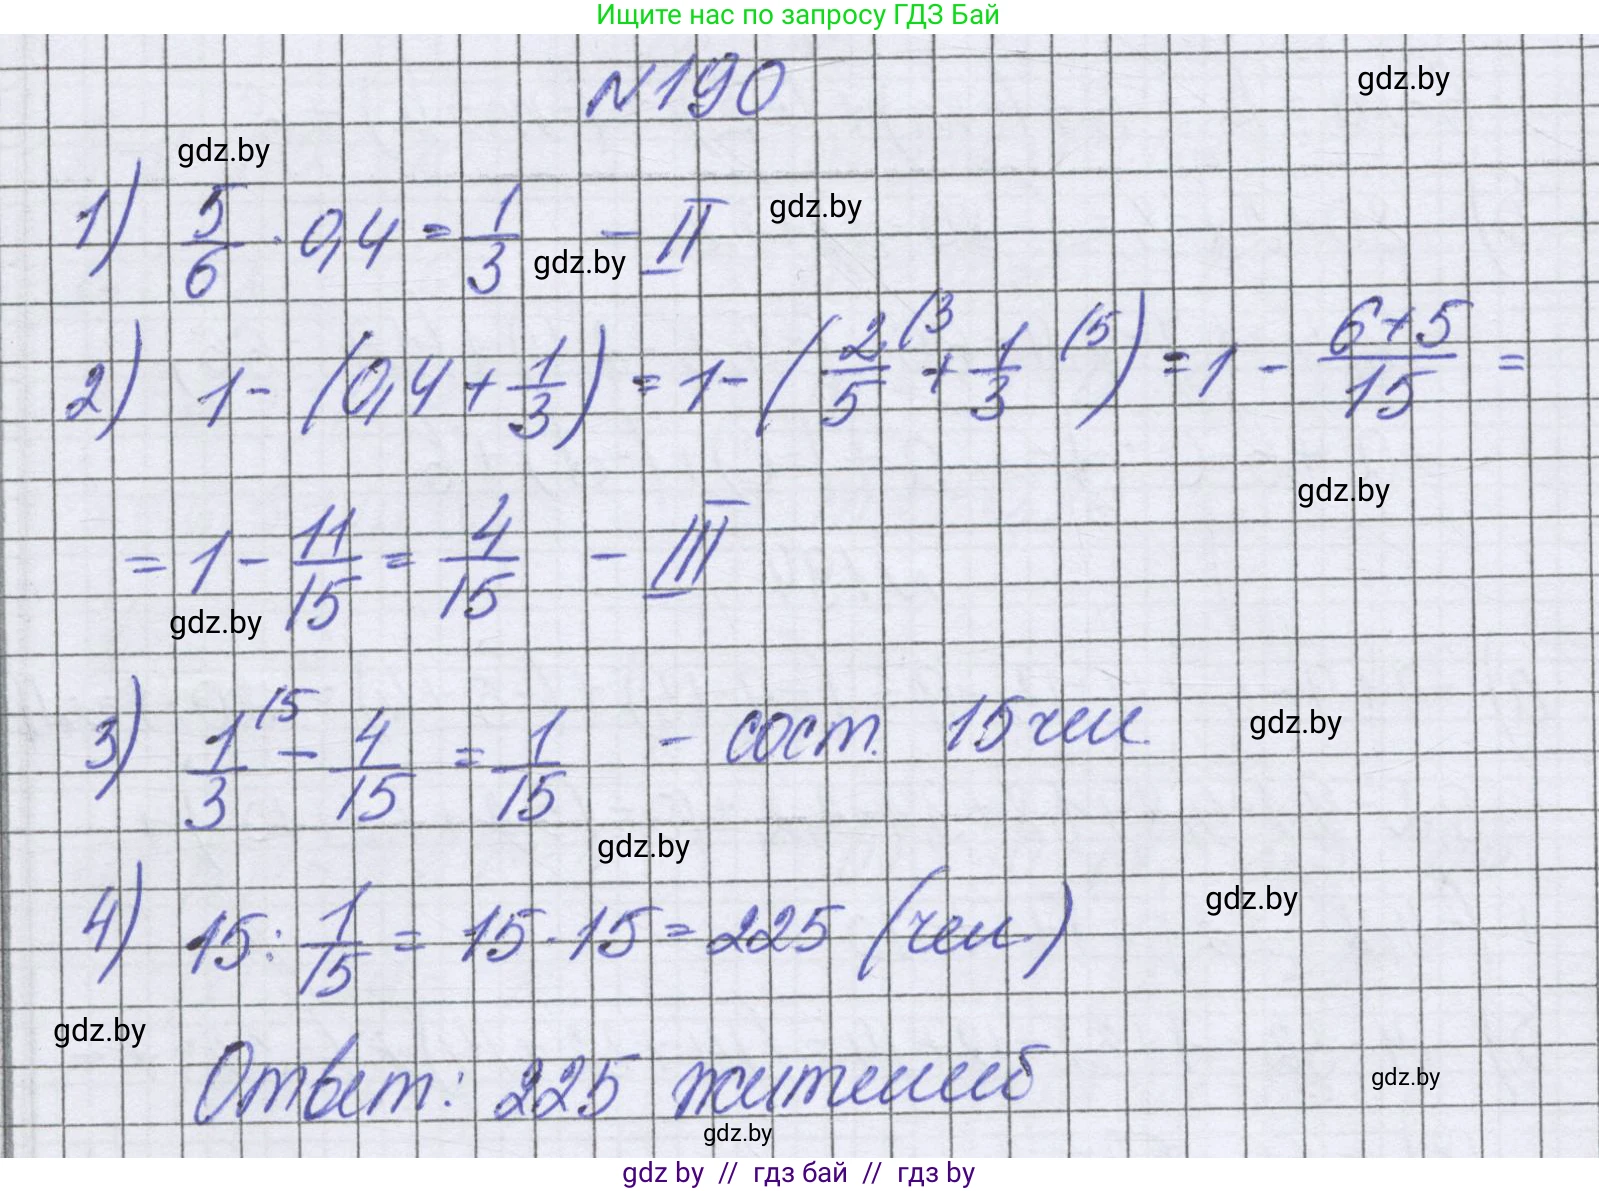 Ищите нас по запросу ГДЗ Бай
№190
gdz.by
gdz.by
1) 5/6 · 0,4 = 1/3 - II
gdz.by
gdz.by
2) 1 - (0,4 + 1/3) = 1 - (2/5 (3 + 1/3 (5) = 1 - (6+5)/15 =
gdz.by
= 1 - 11/15 = 4/15 - III
gdz.by
3) 1/3 (5 - 4/15 = 1/15 - сост. 15 чел.
gdz.by
gdz.by
4) 15 : 1/15 = 15 · 15 = 225 (чел.)
gdz.by
gdz.by
Ответ: 225 жителей
gdz.by
gdz.by
gdz by // гдз бай // гдз by